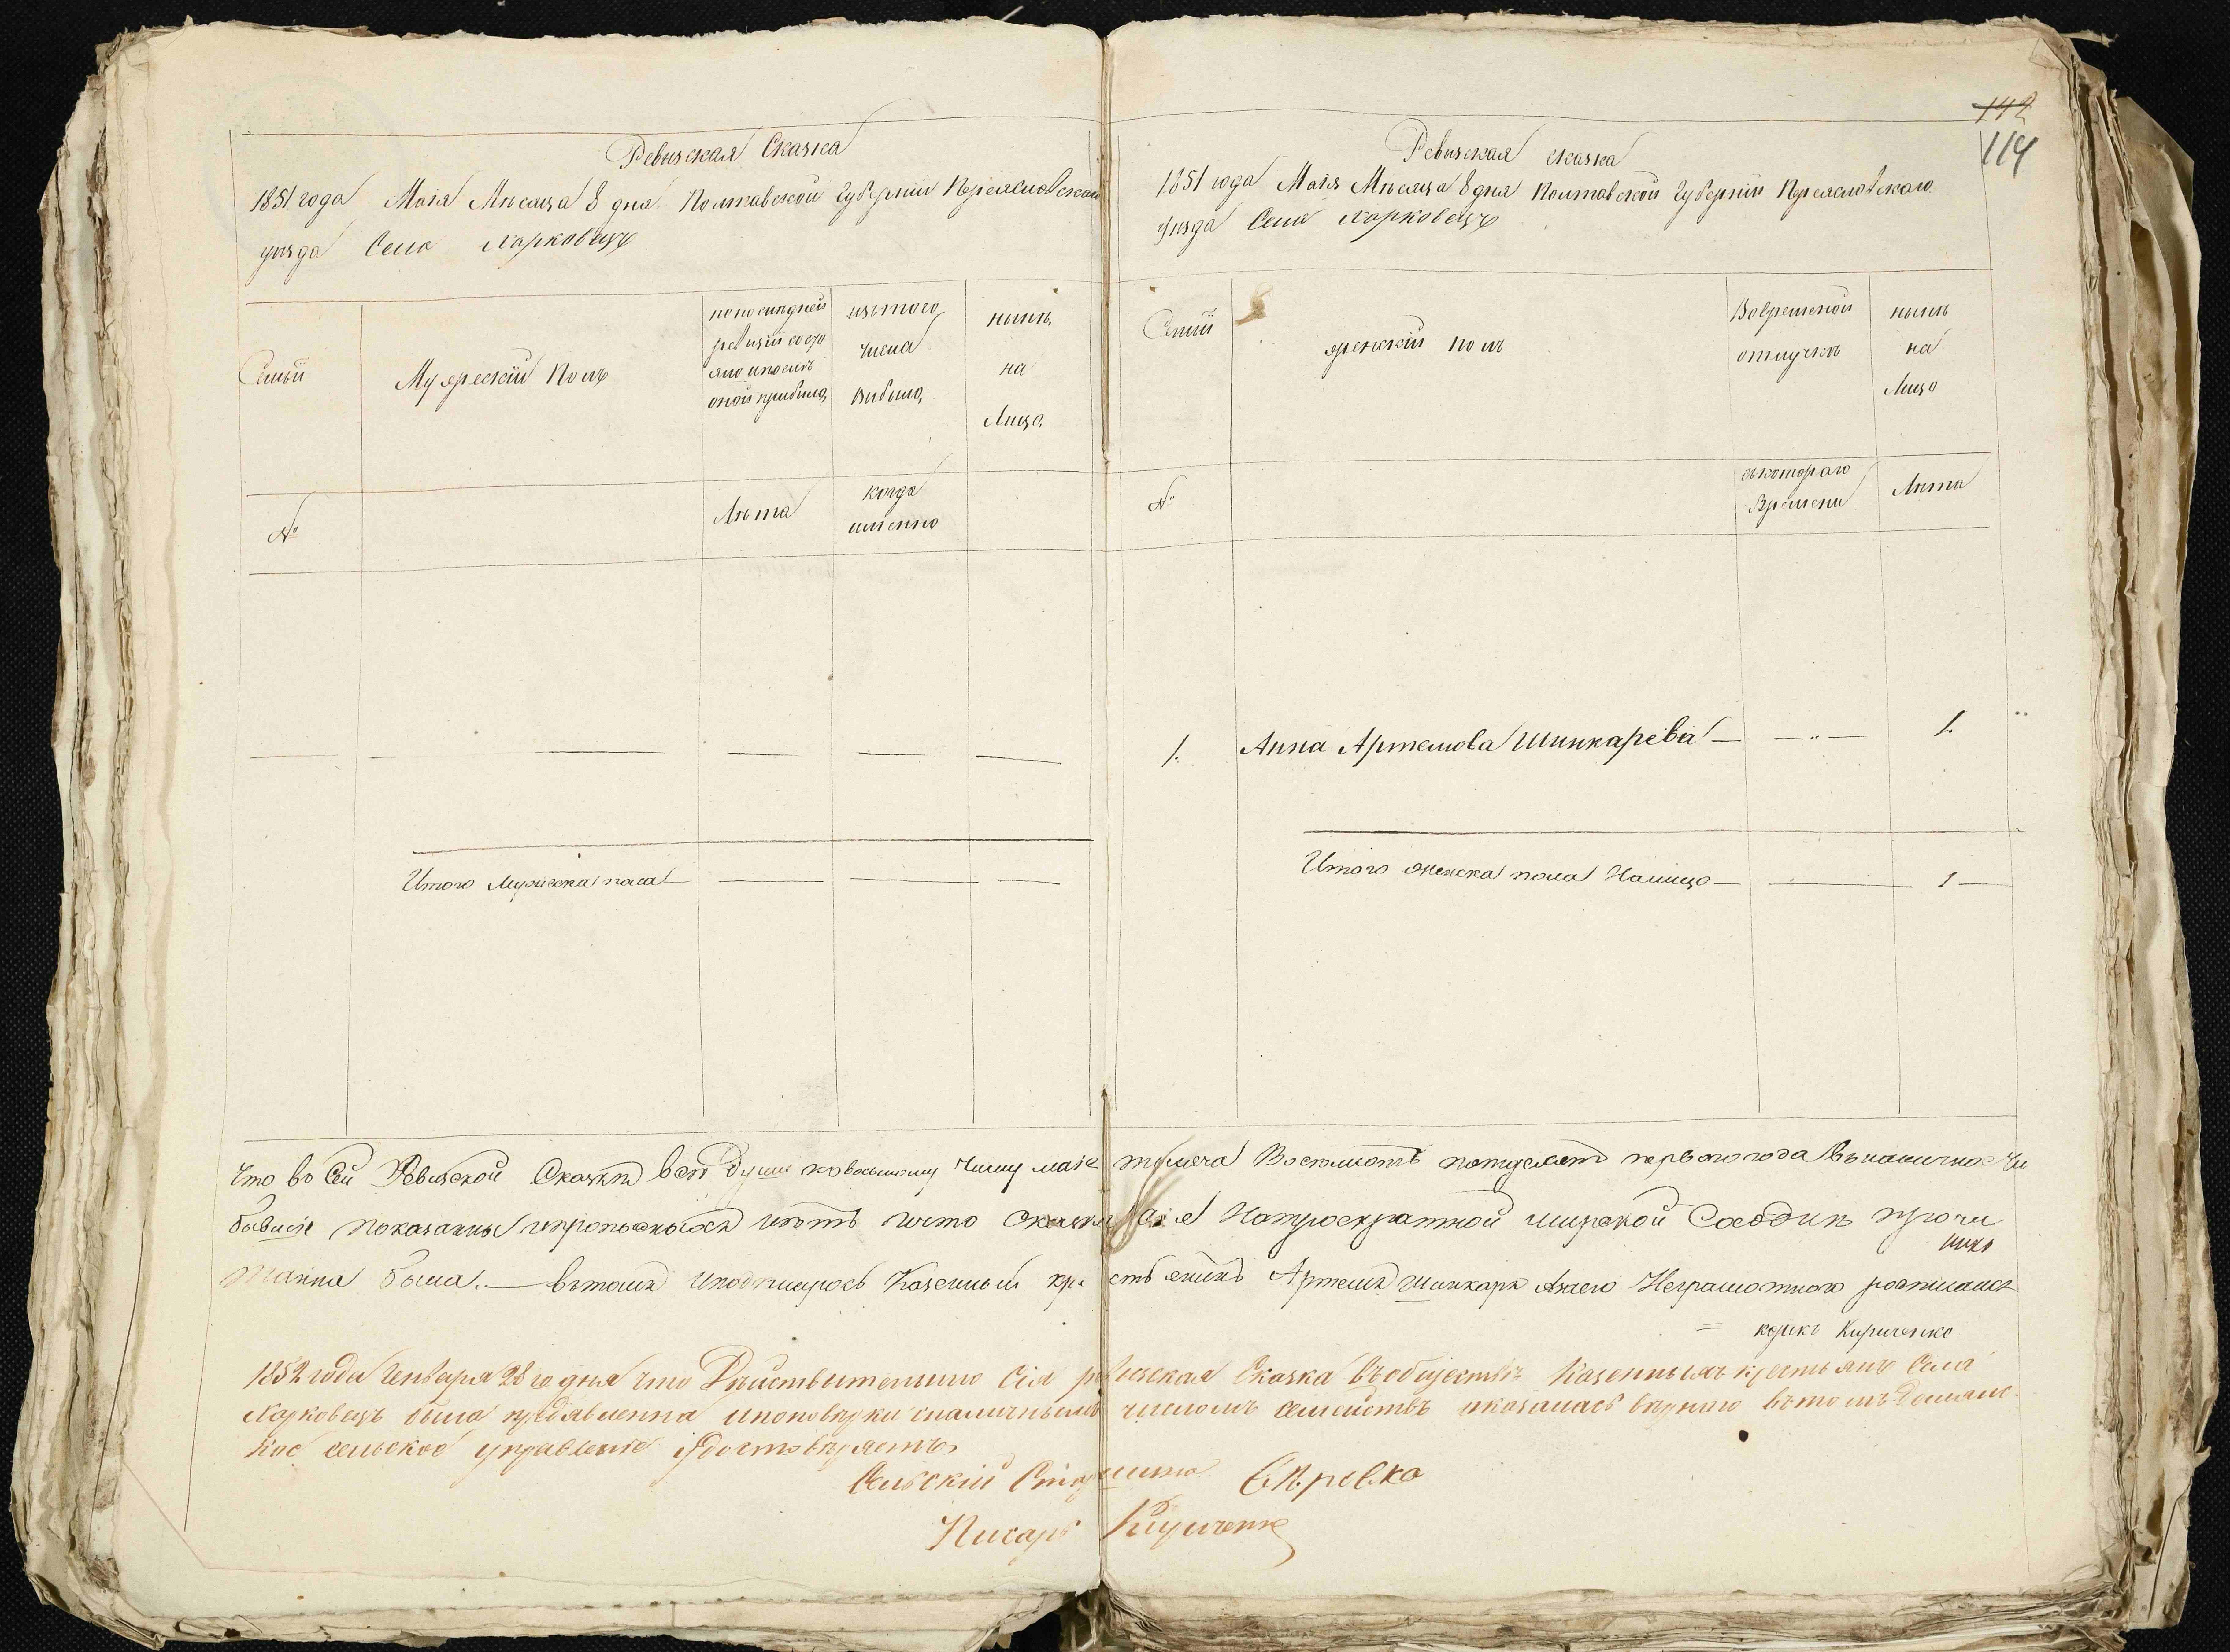 Ревизская Сказка
1851 года Маія Мѣсяца 8 дня Полтавской Губерніи Переясловскаго
уѣзда Села Харковецъ
Семьи
Мужескій Полъ
по последней
ревизіи состо
яло и послѣ
оной прибыло,
изътого
числа
выбыло,
нынѣ
на
Лицо,
№
Лѣта
когда
именно
Итого Мужеска пола
142
114
Ревизская сказка
1851 года Маія Мѣсяца 8 дня Полтавской Губерніи Переясловскаго
уѣзда Села Харковецъ
Семьи
женскій полъ
Вовременной
отлучкѣ
нынѣ
на
Лицо
№
съкотораго
Времени
Лѣта
1. Анна Артемова Шинкарева 1.
Итого женска пола Налицо 1
что во Сей Ревизской Сказкѣ всѣ души повосьмому числу маія тысяча Восемьсотъ пятдесятъ перваго года Въналичности
бывшіе показанны ипропьсныхъ нѣтъ ичто Сказка Сія Натроекратной мирской Сходкѣ прочи
танна была. — вътомъ иподписуюсь Казенный крестьянинъ Артемъ Шинкарь Анаего Неграмотнаго росписался
Кириченко
1852 года Генваря 28 го дня что Дѣйствительно Сія ревизская Сказка Въобществѣ Казенныхъ крестьянъ Села
Харковецъ была предъявленна ипоповѣрки сналичнымъ числомъ семействъ оказалась вѣрною вътомъ
кое сельское управленіе удостовѣряетъ,
Сельскій Старшина
Писарь Кириченко